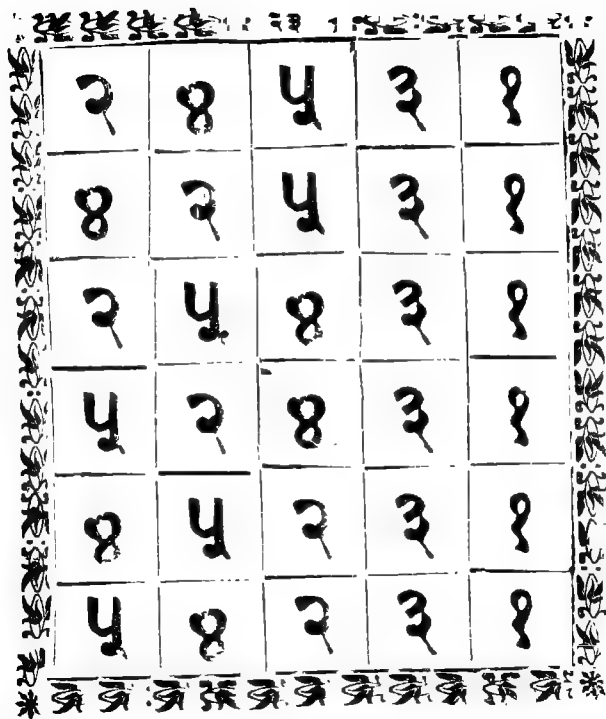 २ ४ ५ ३ १
४ २ ५ ३ १
२ ५ ४ ३ १
५ २ ४ ३ १
४ ५ २ ३ १
५ ४ २ ३ १